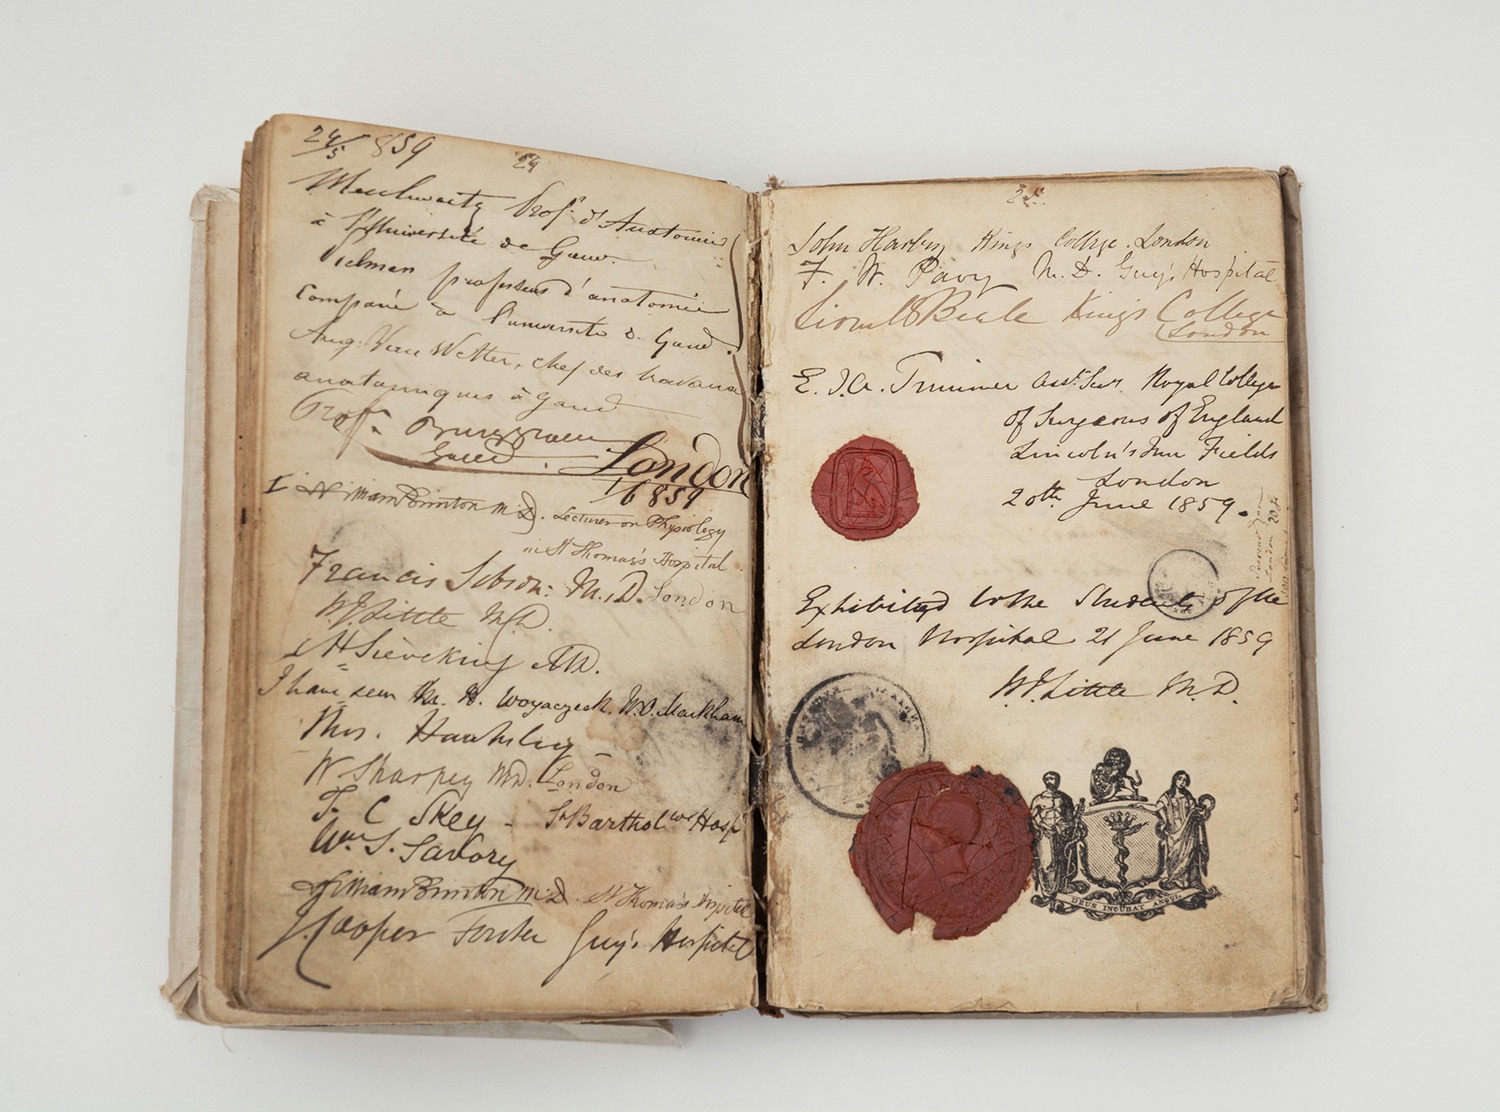 24/5 859
24
Prof. d'Anatomie
à l'Université de Gand.
professeur d'anatomie
comparée à l'université de Gand.
Aug. Van Wetter, chef des travaux
anatomiques à Gand
Prof.
Gand.
London
1/6 859
I William Brinton M.D. Lecturer on Physiology
in St Thomas's Hospital
Francis Sibson: M.D. London
W J Little M.D.
H Sieveking MD.
I have seen W. O. Markham
Thos. Hawksley
W Sharpey MD. London
F. C Skey - St Bartholws Hosp
Wm S. Savory
William Brinton M.D. St Thomas's Hospital
J Cooper Forster Guy's Hospital
25.
John Harley Kings College. London
F. W. Pavy M.D. Guy's Hospital
Lionel S Beale King's College
London
Trimmer Asst Secy Royal College
of Surgeons of England
Lincoln's Inn Fields
London
20th June 1859.
Exhibited to the Students of the
London Hospital 21 June 1859
W J Little M.D.
DEUS INCUBAT ANGUI